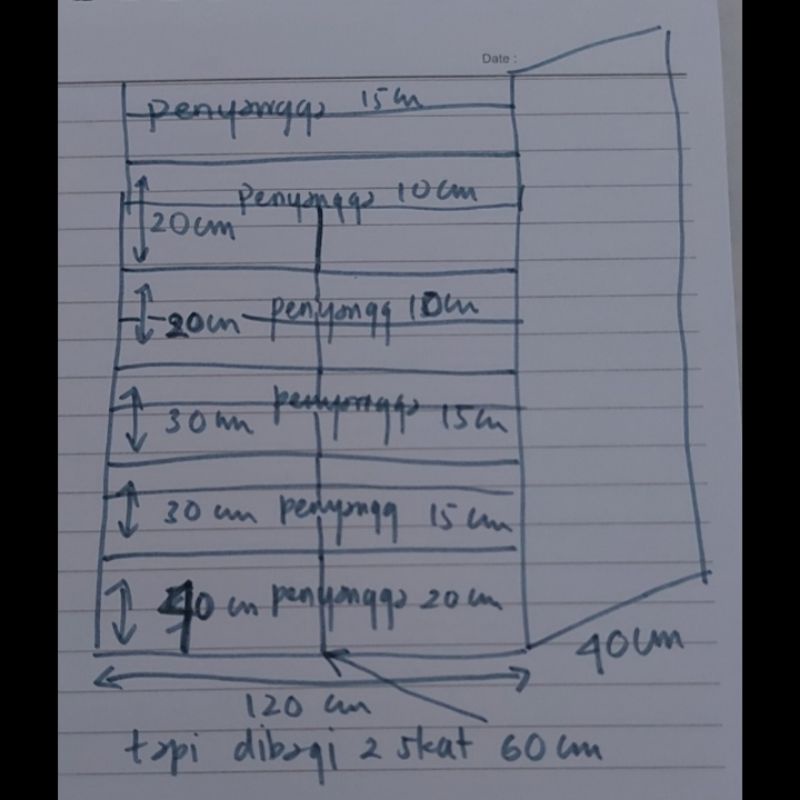 Date :
penyangga 15 cm
penyangga 10 cm
20 cm
20 cm penyangg 10 cm
30 cm penyangga 15 cm
30 cm penyangg 15 cm
40 cm penyangga 20 cm
40 cm
120 cm
tapi dibagi 2 skat 60 cm